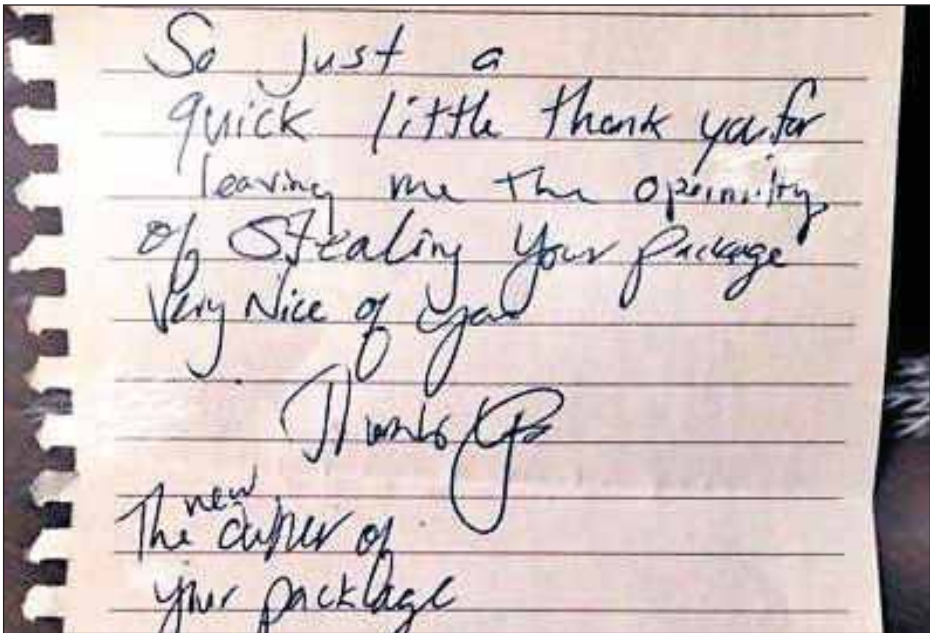 So just a
quick little thank you for
leaving me the
of Stealing Your package
Very Nice of you
Thanks
new
The owner of
your package